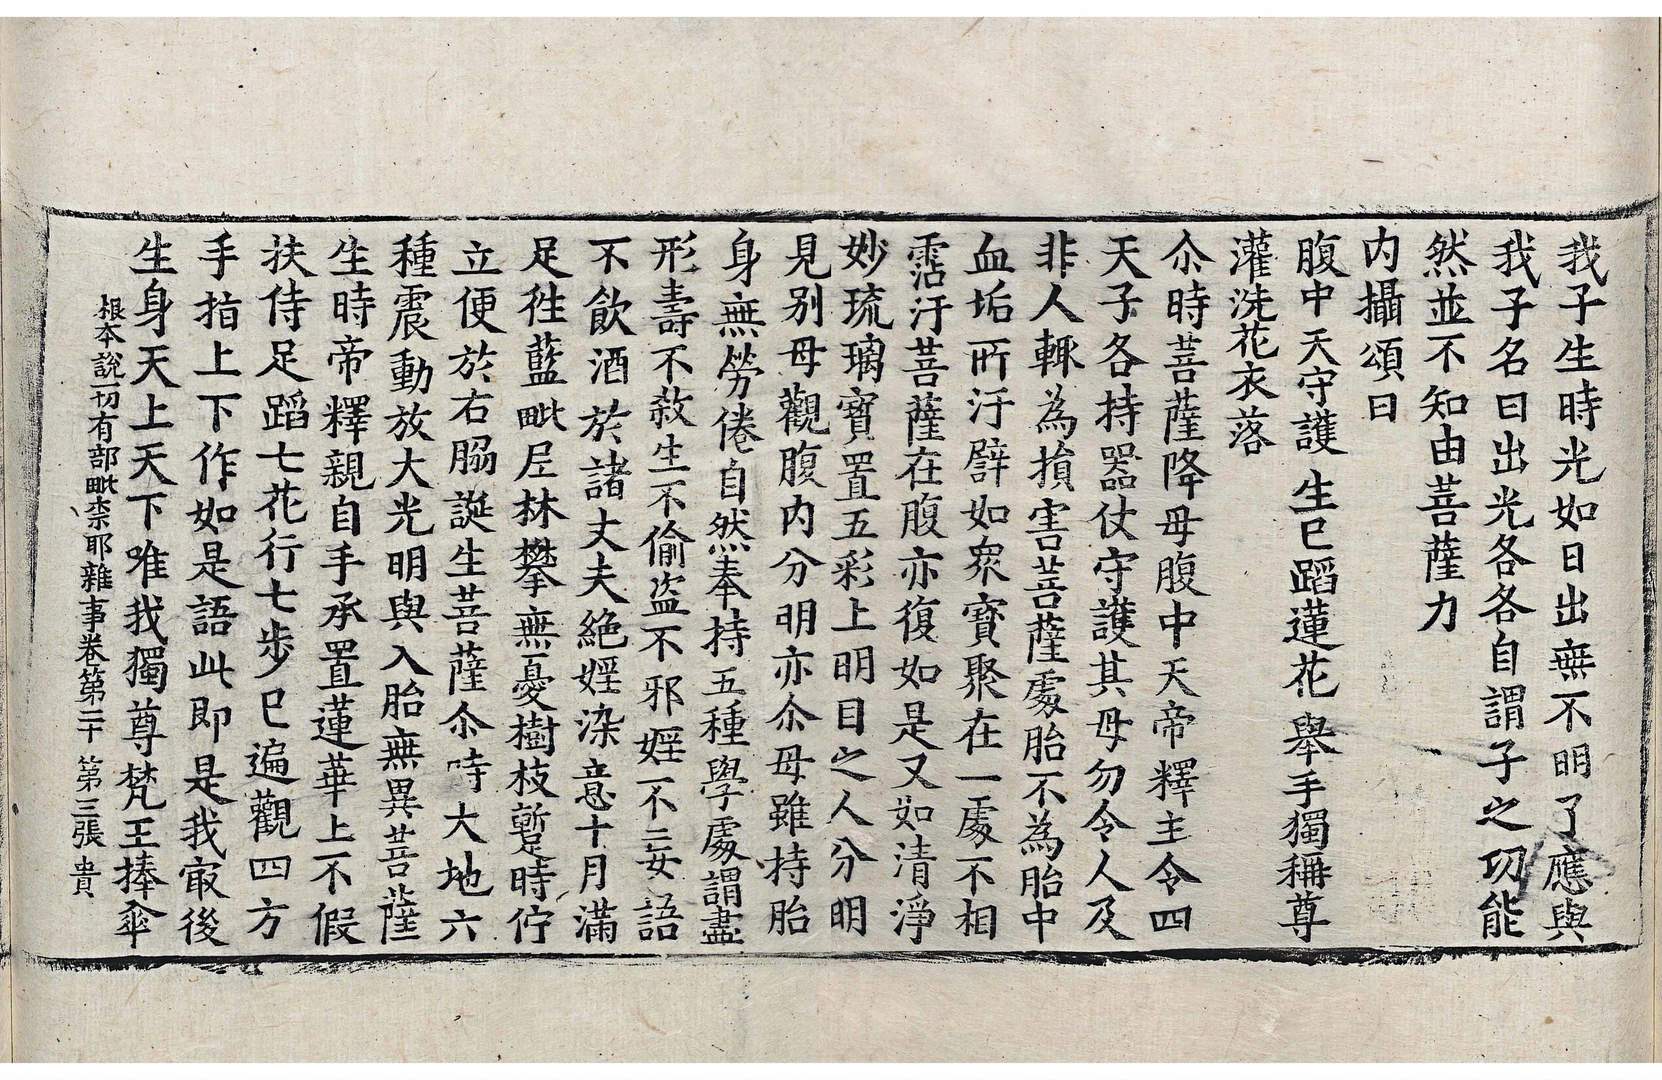 我子生時光如日出無不明了應與
我子名曰出光各各自謂子之功能
然並不知由菩薩力
内攝頌曰
腹中天守護 生已蹈蓮花 舉手獨稱尊
灌洗花衣落
尒時菩薩降母腹中天帝釋主令四
天子各持器仗守護其母勿令人及
非人輒為損害菩薩處胎不為胎中
血垢所汙譬如衆寶聚在一處不相
霑汙菩薩在腹亦復如是又如清淨
妙琉璃寶置五彩上明目之人分明
見别母觀腹内分明亦尒母雖持胎
身無勞倦自然奉持五種學處謂盡
形壽不殺生不偷盗不邪婬不妄語
不飲酒於諸丈夫絶婬染意十月滿
足徃藍毗尼林攀無憂樹枝暫時佇
立便於右脇誕生菩薩尒時大地六
種震動放大光明與入胎無異菩薩
生時帝釋親自手承置蓮華上不假
扶侍足蹈七花行七步已遍觀四方
手指上下作如是語此即是我㝡後
生身天上天下唯我獨尊梵王捧傘
根本說一切有部毗柰耶雜事卷第二十 第三張 貴